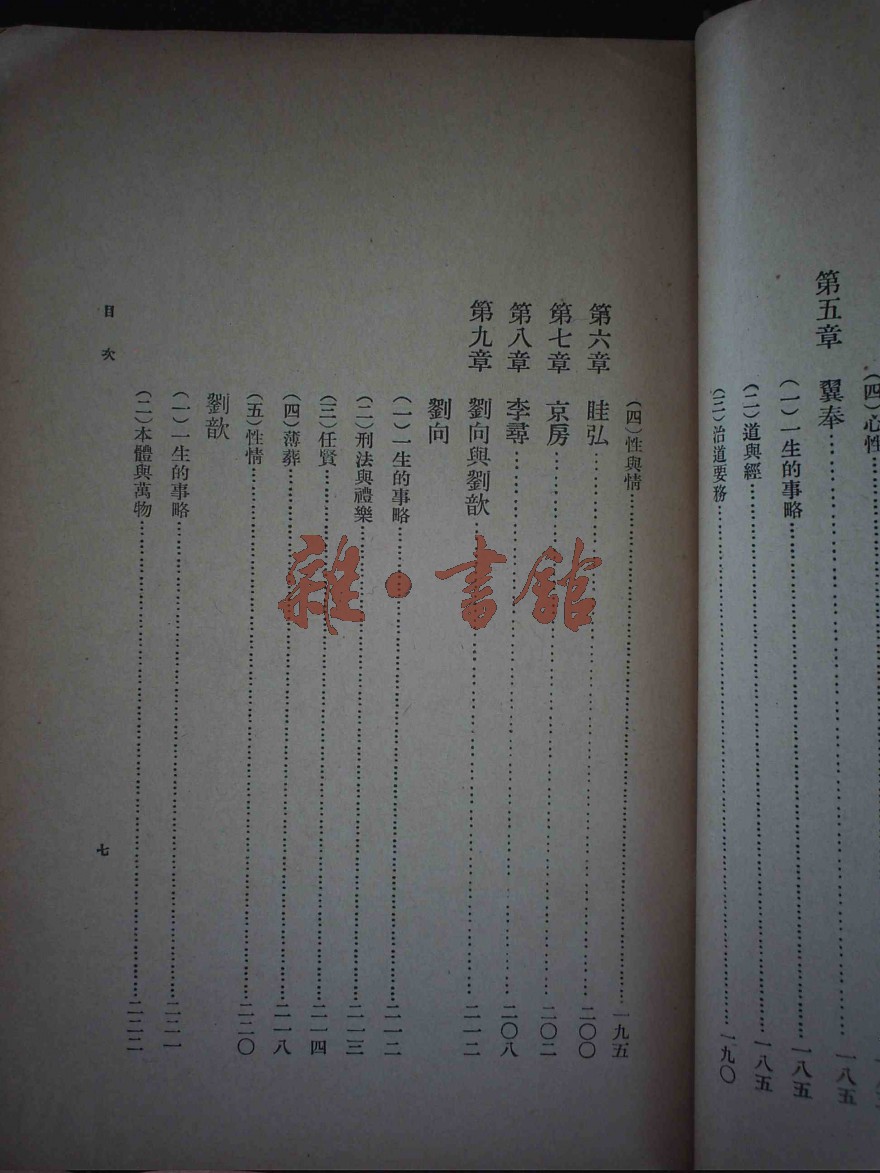 (四)心性
第五章　翼奉……一八五
(一)一生的事略……一八五
(二)道與經……一八五
(三)治道要務……一九〇
(四)性與情……一九五
第六章　眭弘……二〇〇
第七章　京房……二〇二
第八章　李尋……二〇八
第九章　劉向與劉歆……二一二
劉向
(一)一生的事略……二一二
(二)刑法與禮樂……二一三
(三)任賢……二一四
(四)薄葬……二一八
(五)性情……二二〇
劉歆
(一)一生的事略……二二一
(二)本體與萬物……二二二
目次
七
雜·書館